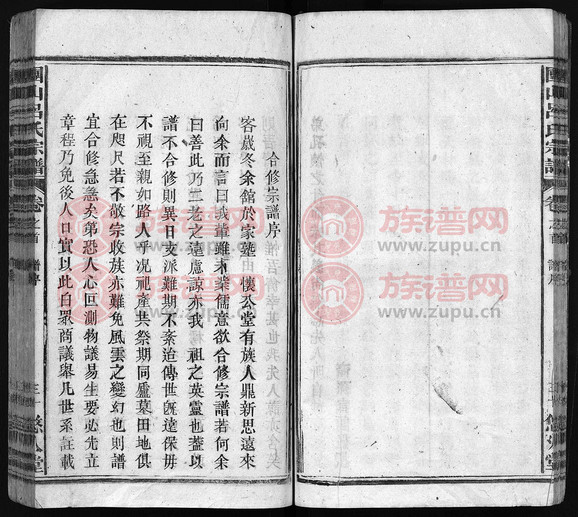 合修宗譜序
客歲冬余舘於家塾 懷公堂有族人鼎新思遠來
向余而言曰我輩雖未業儒意欲合修宗譜若何余
曰善此乃二老之遠慮諒亦我 祖之英靈也蓋以
譜不合修則異日支派難期不紊迨傳世旣遠保毋
不視至親如路人乎况祀產共祭期同廬墓田地俱
在咫尺若不敬宗收族亦難免風雲之變幻也則譜
宜合修急急矣第恐人心叵測物議易生要必先立
章程乃免後人口實以此白眾商議舉凡世系註載
圍山呂氏宗譜
卷之首
族谱网
www.zupu.cn
族谱网
www.zupu.cn
族谱网
www.zupu.cn
族谱网
www.zupu.cn